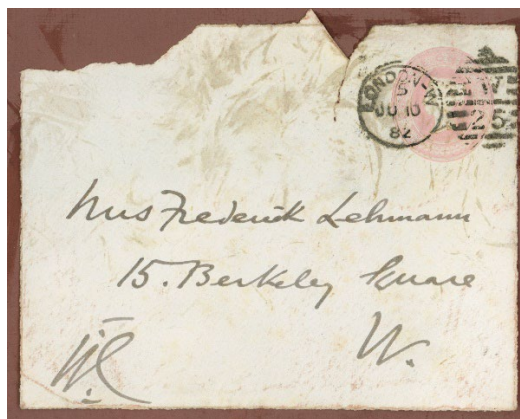 LONDON-W
5
JU 10
82
W
25
Mrs Frederick Lehmann
15. Berkeley Square
W.